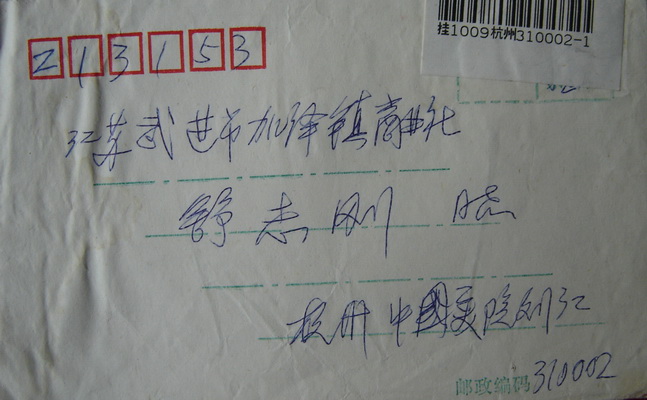 挂1009杭州310002-1
213153
江苏武进市加泽镇商业社
舒志刚
杭州中国美院刘江
邮政编码310002